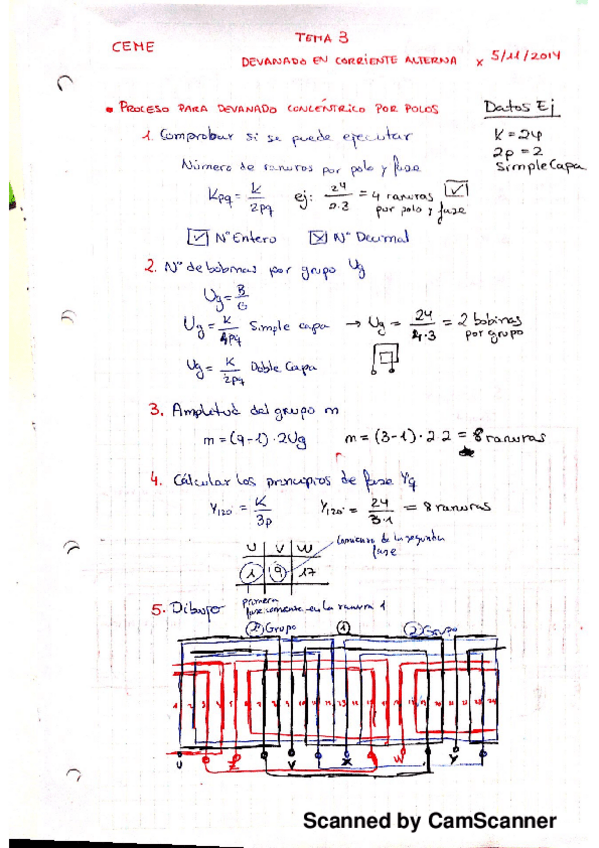 CEME
TEMA 3
DEVANADO EN CORRIENTE ALTERNA x 5/11/2014
• PROCESO PARA DEVANADO CONCÉNTRICO POR POLOS
Datos Ej
K = 24
2p = 2
Simple Capa
1. Comprobar si se puede ejecutar
Número de ranuras por polo y fase
Kpq = K/2pq ej: 24/2·3 = 4 ranuras por polo y fase ☑
☑ Nº Entero ☒ Nº Decimal
2. Nº de bobinas por grupo Ug
Ug = B/G
Ug = K/4pq Simple capa → Ug = 24/4·3 = 2 bobinas por grupo
Ug = K/2pq Doble Capa
3. Amplitud del grupo m
m = (q-1)·2Ug m = (3-1)·2 2 = 8 ranuras
4. Cálcular los principios de fase Yq
Y120º = K/3p Y120º = 24/3·1 = 8 ranuras
U V W
1 9 17
comienzo de la segunda fase
primera fase comienza en la ranura 1
5. Dibujo
(2) Grupo (1) (2) Grupo
U Z V X W Y
Scanned by CamScanner